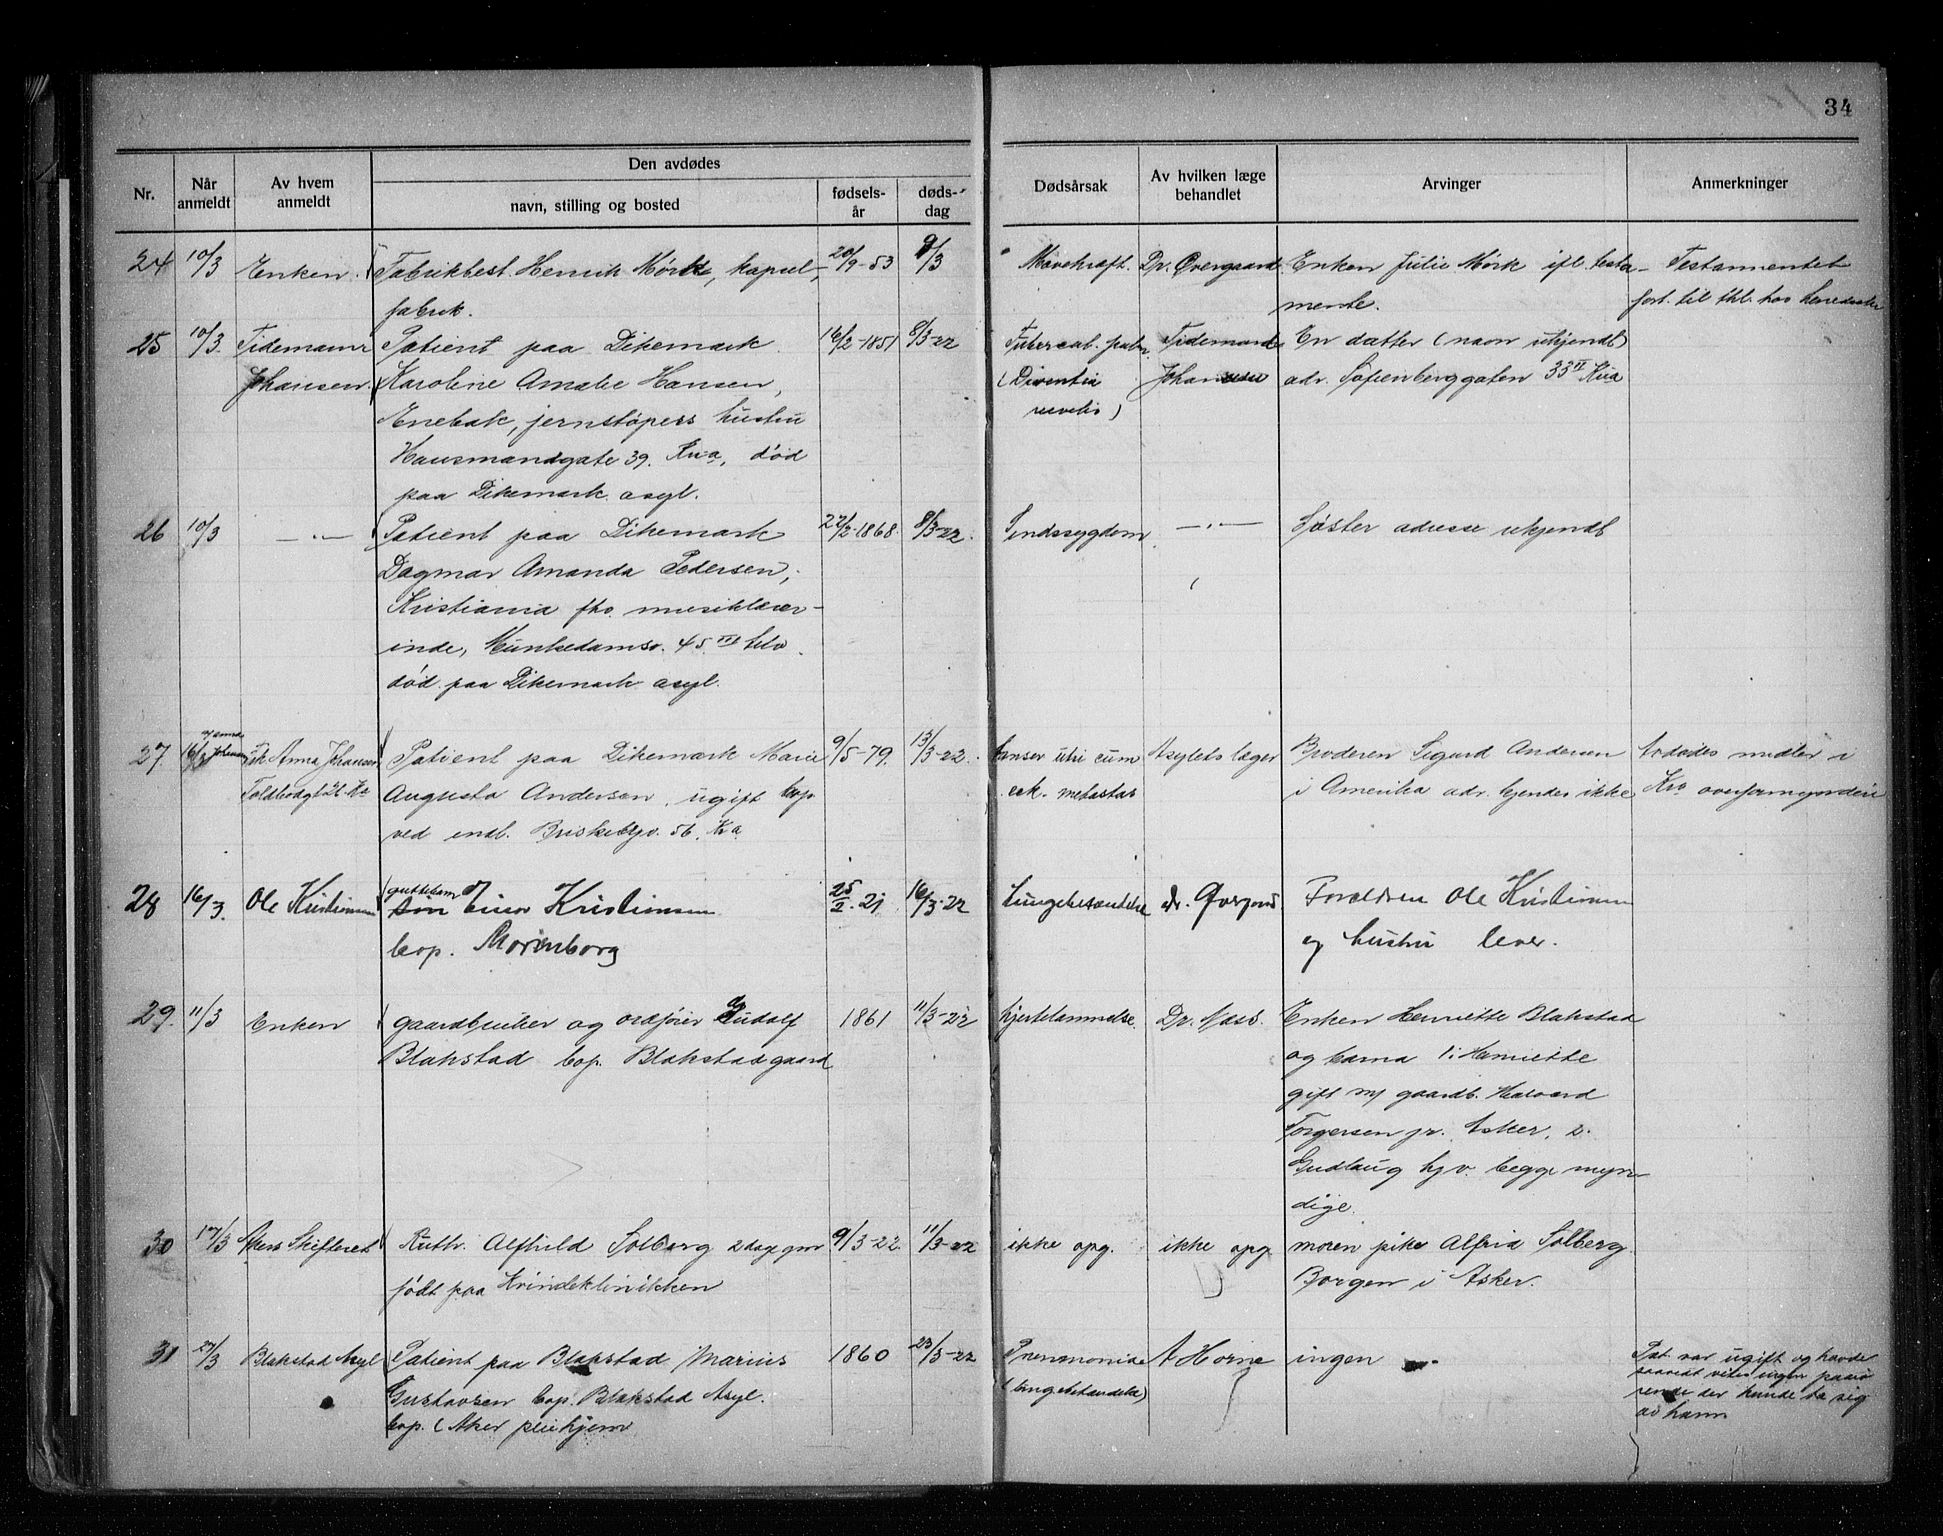 34
Den avdødes
Nr.
Når anmeldt
Av hvem anmeldt
navn, stilling og bosted
fødsels-år
døds-dag
Dødsårsak
Av hvilken læge behandlet
Arvinger
Anmerkninger
24 10/3 Enken. Fabrikbest. Henrik Mørk, kapsel- 20/9-53 9/3 Mavekræft. Dr. Øvergaard Enken Julie Mørk ifl. testa- Testamentet
fabrik. mente. fort. til thl. hos
25 10/3 Tidemann Patient paa Dikemark 16/2-1851 8/3-22 Tubercul. pulm. Tidemand En datter (navn ukjendt)
Johansen. Karoline Amalie Hansen, Johansen adr. Sofienberggaten 33 II Kria
Enebak, jernstøpers hustru
Hausmandsgate 39. Kr.a, død
paa Dikemark asyl.
26 10/3 —"— Patient paa Dikemark 22/2-1868. 8/3-22. Sindssygdom —"— Søster adresse ukjendt
Dagmar Amanda Pedersen,
Kristiania fhv. musiklærer-
inde, Munkedamsv. 45 III
død paa Dikemark asyl.
27 16/3 Frk Anna Johansen Patient paa Dikemark Marie 9/5-79. 13/3-22. Canser utri cum Asylets læger Broderen Sigurd Andersen Avdødes midler i
Toldbodgt 26 Kr.a Augusta Andersen, ugift bop. metastas i Amerika adr. kjendes ikke Kra overformynderi
ved indl. Briskebyv. 56. Kr a
28 16/3. Ole Kristiansen guttebarn Einar Kristiansen 25/2-21. 16/3-22 Lungebetændelse dr. Øvergaard Forældren Ole Kristiansen
bop. Morenborg og hustru lever.
29. 11/3 Enken gaardbruker og ordfører Gudolf 1861 11/3-22 hjertelammelse Dr. Næss. Enken Henriette Blakstad
Blakstad bop. Blakstad gaard og barna 1: Henriette
gift m/ gaardb. Halvard
Torgersen jr. Asker, 2.
Gudlaug hjv. begge myn-
dige.
30 17/3 Akers Skifteret Ruth Alfhild Solberg 2 dage gml 9/3-22 11/3-22 ikke opg. ikke opg. moren pike Alfrid Solberg.
født paa Kvindeklinikken Borgen i Asker.
31 27/3 Blakstad Asyl Patient paa Blakstad Marius 1860 23/3-22 Pneumonia A Horne ingen Pat. var ugift og havde
Gustavsen bop. Blakstad Asyl. (lungebetændelse) saavidt vites ingen paarø
bop. (Aker pleiehjem rende der kunde ta sig
av ham